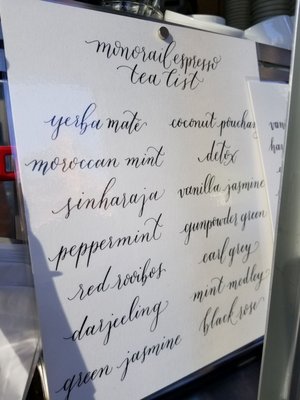 monorail espresso
tea list
yerba maté
moroccan mint
sinharaja
peppermint
red rooibos
darjeeling
green jasmine
coconut pouchong
detox
vanilla jasmine
gunpowder green
earl grey
mint medley
black rose